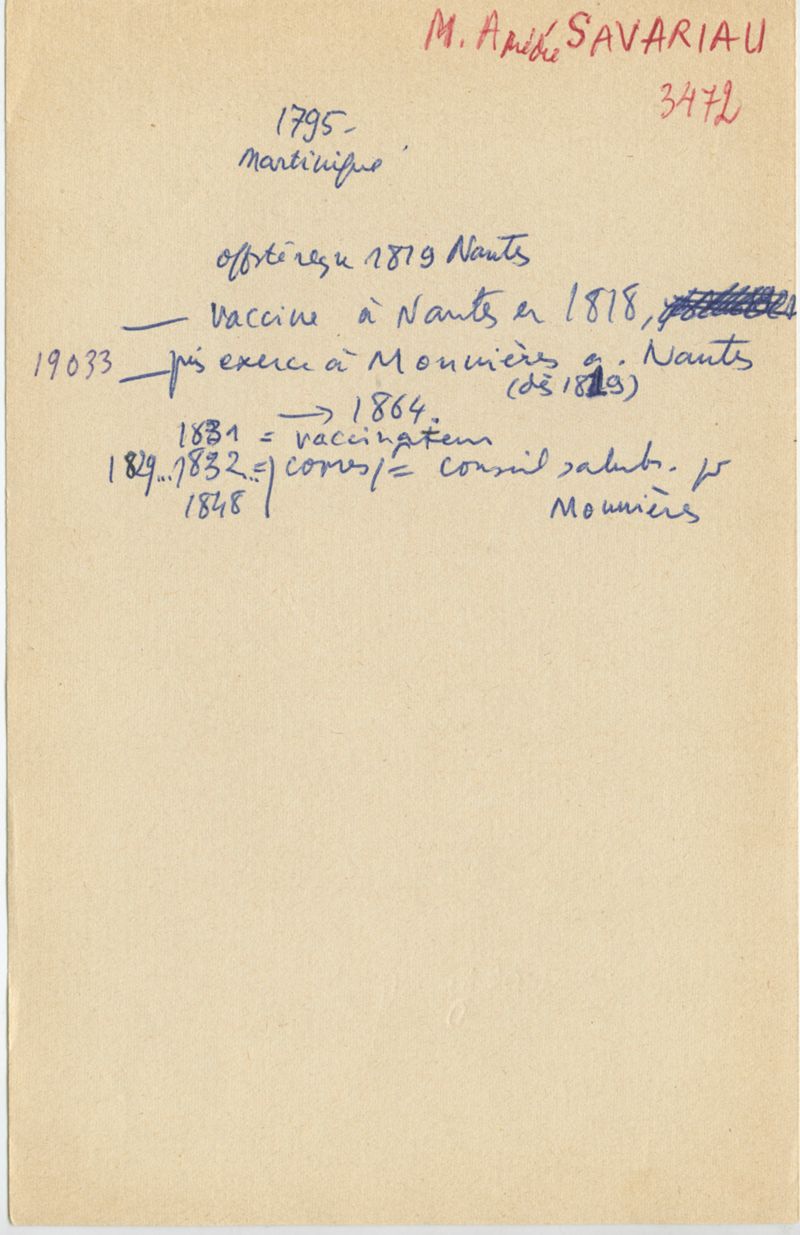 M. Amédée SAVARIAU
3472
1795-
Martinique
off. sté reçu 1819 Nantes
— vaccine à Nantes en 1818,
19033 — puis exerce à Monnières a. Nantes
(dès 1819)
→ 1864.
1831 = vaccinateur
1829...1832...= corresp = conseil salub. pr
1848 Monnières